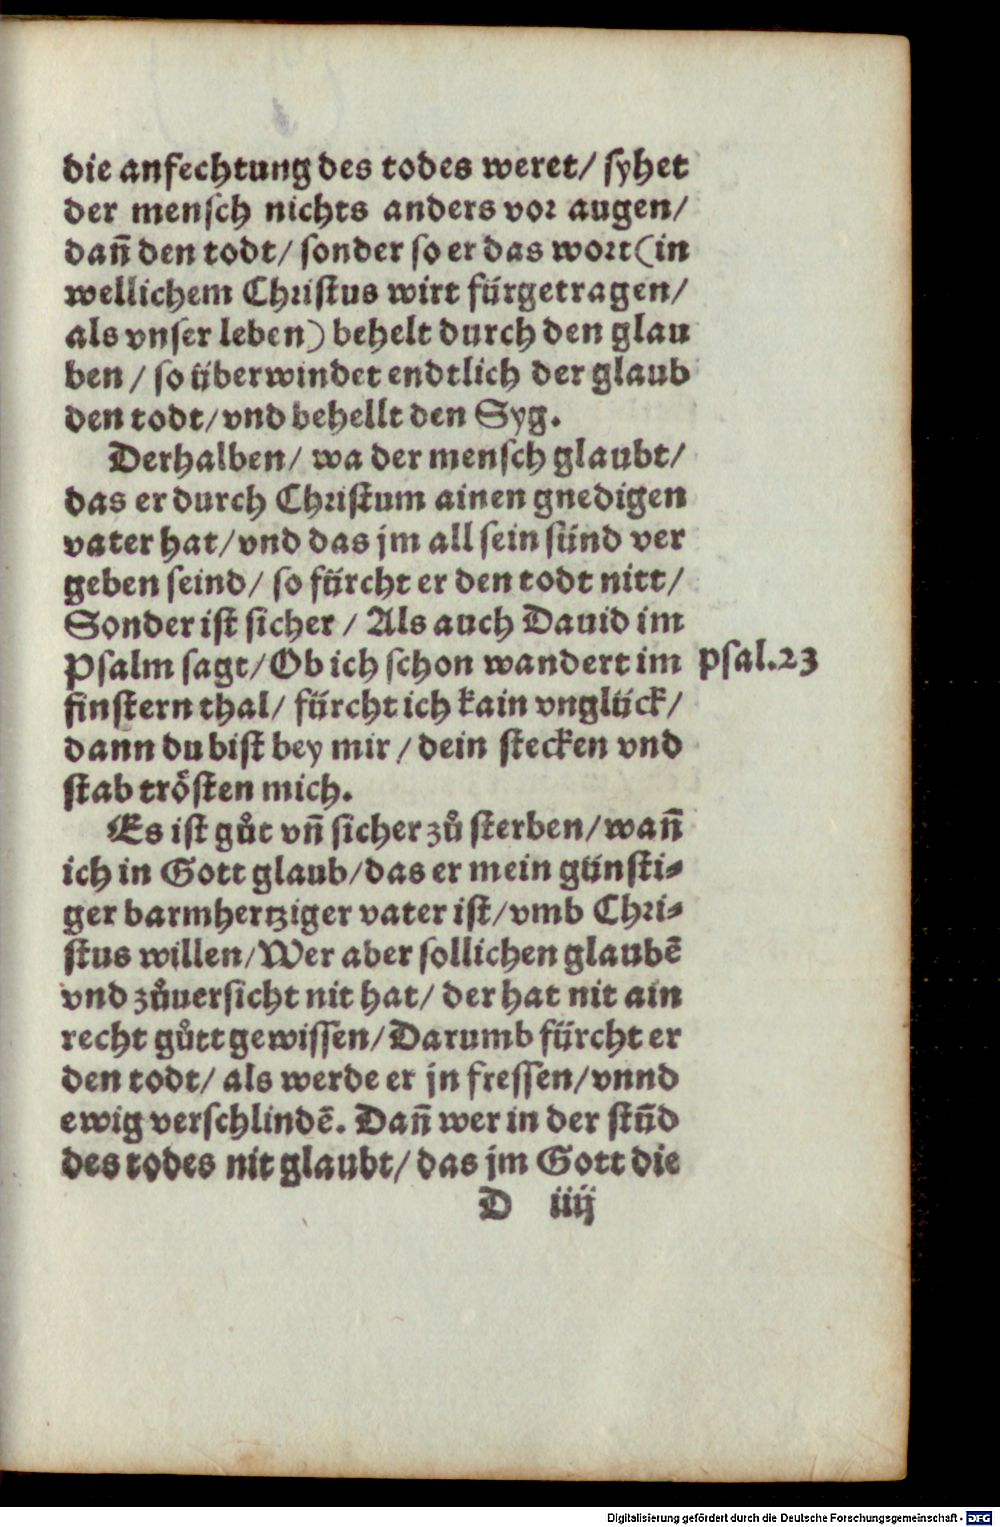 die anfechtung des todes weret/ syhet
der mensch nichts anders vor augen/
dañ den todt/ sonder so er das wort (in
wellichem Christus wirt fürgetragen/
als vnser leben) behelt durch den glau
ben / so überwindet endtlich der glaub
den todt/ vnd behellt den Syg.
Derhalben/ wa der mensch glaubt/
das er durch Christum ainen gnedigen
vater hat/ vnd das jm all sein sünd ver
geben seind/ so fürcht er den todt nitt/
Sonder ist sicher / Als auch Dauid im
Psalm sagt/ Ob ich schon wandert im psal.23
finstern thal/ fürcht ich kain vnglück/
dann du bist bey mir / dein stecken vnd
stab trösten mich.
Es ist gůt vñ sicher zů sterben/ wañ
ich in Gott glaub/ das er mein günsti-
ger barmhertziger vater ist/ vmb Chri-
stus willen/ Wer aber sollichen glaubē
vnd zůuersicht nit hat/ der hat nit ain
recht gůtt gewissen/ Darumb fürcht er
den todt/ als werde er jn fressen/ vnnd
ewig verschlindē. Dañ wer in der stūd
des todes nit glaubt/ das jm Gott die
D iiij
Digitalisierung gefördert durch die Deutsche Forschungsgemeinschaft - DFG